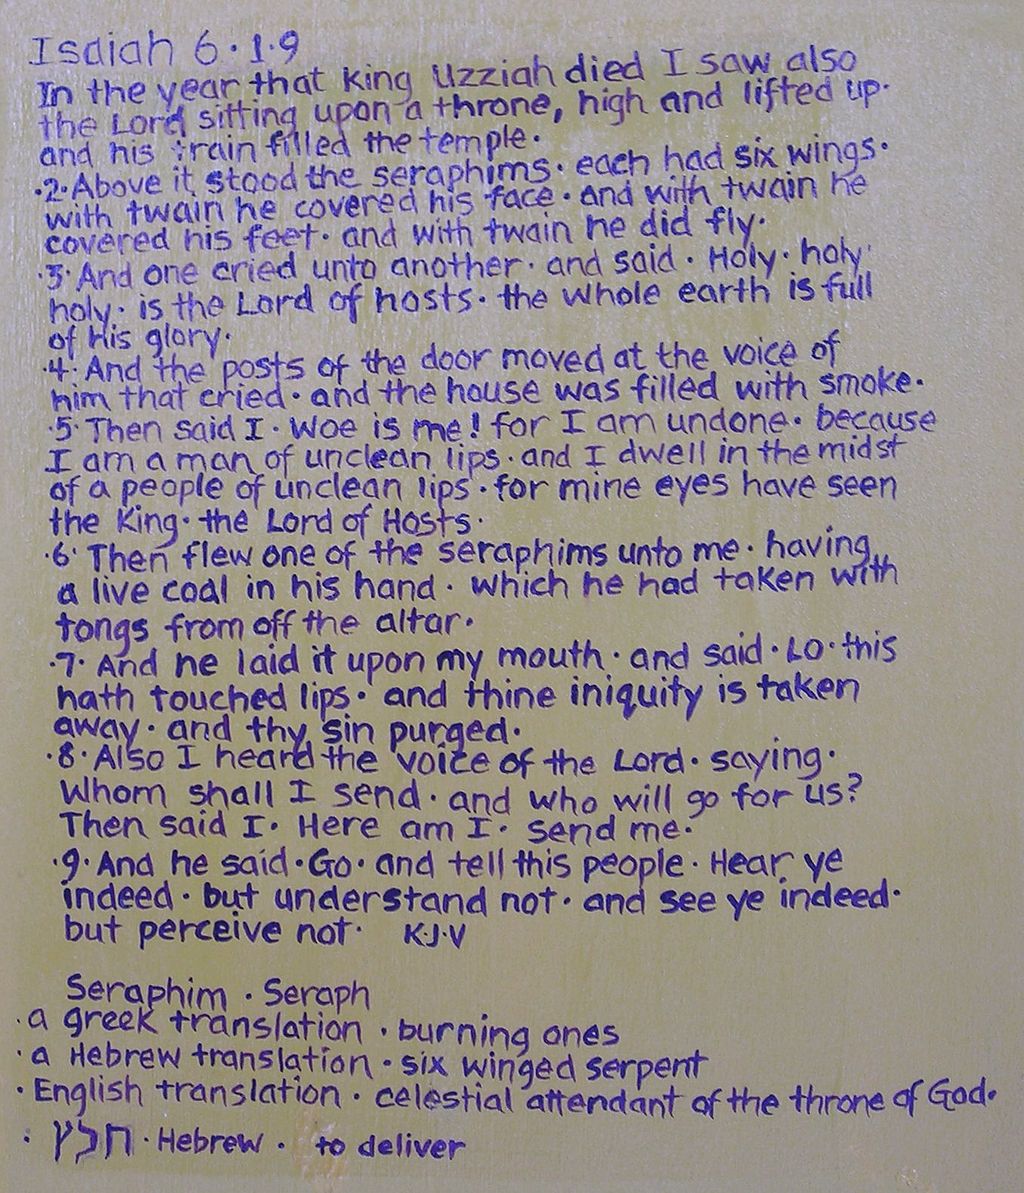 Isaiah 6·1·9
In the year that King Uzziah died I saw also
the Lord sitting upon a throne, high and lifted up·
and his train filled the temple·
·2·Above it stood the seraphims· each had six wings·
with twain he covered his face· and with twain he
covered his feet· and with twain he did fly·
·3·And one cried unto another· and said· Holy· holy·
holy· is the Lord of hosts· the whole earth is full
of His glory·
·4·And the posts of the door moved at the voice of
him that cried· and the house was filled with smoke·
·5·Then said I· Woe is me! for I am undone· because
I am a man of unclean lips· and I dwell in the midst
of a people of unclean lips· for mine eyes have seen
the King· the Lord of Hosts·
·6·Then flew one of the seraphims unto me· having
a live coal in his hand· which he had taken with
tongs from off the altar·
·7·And he laid it upon my mouth· and said· Lo· this
hath touched lips· and thine iniquity is taken
away· and thy sin purged·
·8·Also I heard the voice of the Lord· saying·
Whom shall I send· and who will go for us?
Then said I· Here am I· send me·
·9·And he said· Go· and tell this people· Hear ye
indeed· but understand not· and see ye indeed·
but perceive not· K·J·V
Seraphim · Seraph
·a greek translation · burning ones
·a Hebrew translation · six winged serpent
·English translation · celestial attendant of the throne of God·
· חלץ · Hebrew · to deliver